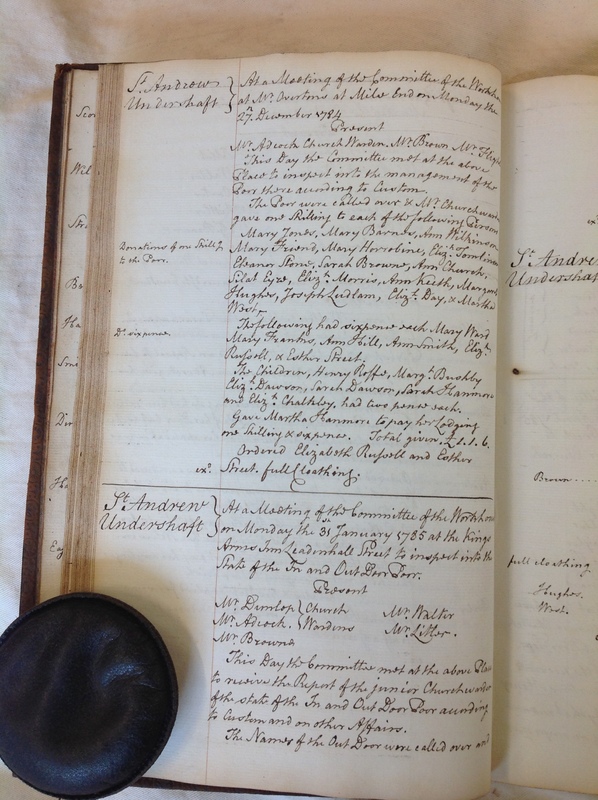 St. Andrew
Undershaft
At a Meeting of the Committee of the Workho
at Mr. Overtons at Mile End on Monday the
27th December 1784
Present
Mr. Adcock Church Warden. Mr. Brown Mr.
This Day the Committee met at the above
Place to inspect into the management of the
Poor there according to Custom.
The Poor were called over & Mr. Churchwarden
gave one Shilling to each of the following Persons
Mary Jones, Mary Barnes, Ann Wilkinson
Donations of one Shillg.
to the Poor.
Mary Friend, Mary Horrobine, Elizth. Tomlinson
Eleanor Stone, Sarah Browne, Ann Church,
Silat Eyre, Elizth. Morris, Ann Keith, Margaret
Hughes, Joseph Ludlam, Elizth. Day, & Martha
West.
The following had sixpence each Mary Ward
Do. sixpence.
Mary Franks, Ann Hill, Ann Smith, Elizth.
Russell, & Esther Street.
The Children, Henry Roffe, Margt. Bushby
Elizth. Dawson, Sarah Dawson, Sarah Hanmore
and Elizth. Chalkley, had two pence each.
Gave Martha Hanmore to pay her Lodging
one Shilling & sixpence. Total given £1.1.6.
Ordered Elizabeth Russell and Esther
exd. Street full cloathing.
St. Andrew
Undershaft
At a Meeting of the Committee of the Workhouse
on Monday the 31st January 1785 at the Kings
Arms Inn Leadenhall Street to inspect into the
State of the In and Out Door Poor.
Present
Mr. Dunlop Church Mr. Walter
Mr. Adcock. Wardens Mr. Litter.
Mr. Browne
This Day the Committee met at the above Place
to receive the Report of the junior Churchwarden
of the state of the In and Out Door Poor according
to Custom and on other Affairs.
The Names of the Out Door were called over and
St. Andrew
Undershaft
Brown
full cloathing
Hughes.
West.